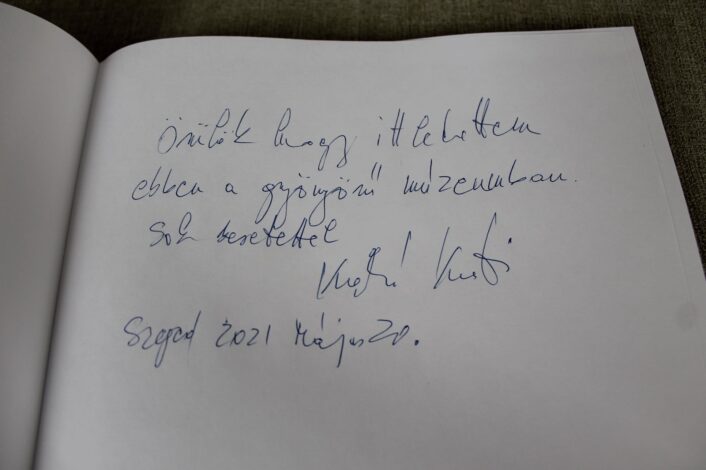 Örülök hogy itt lehettem
ebben a gyönyörű múzeumban.
Sok szeretettel
Kati
Szeged 2021 Május 20.